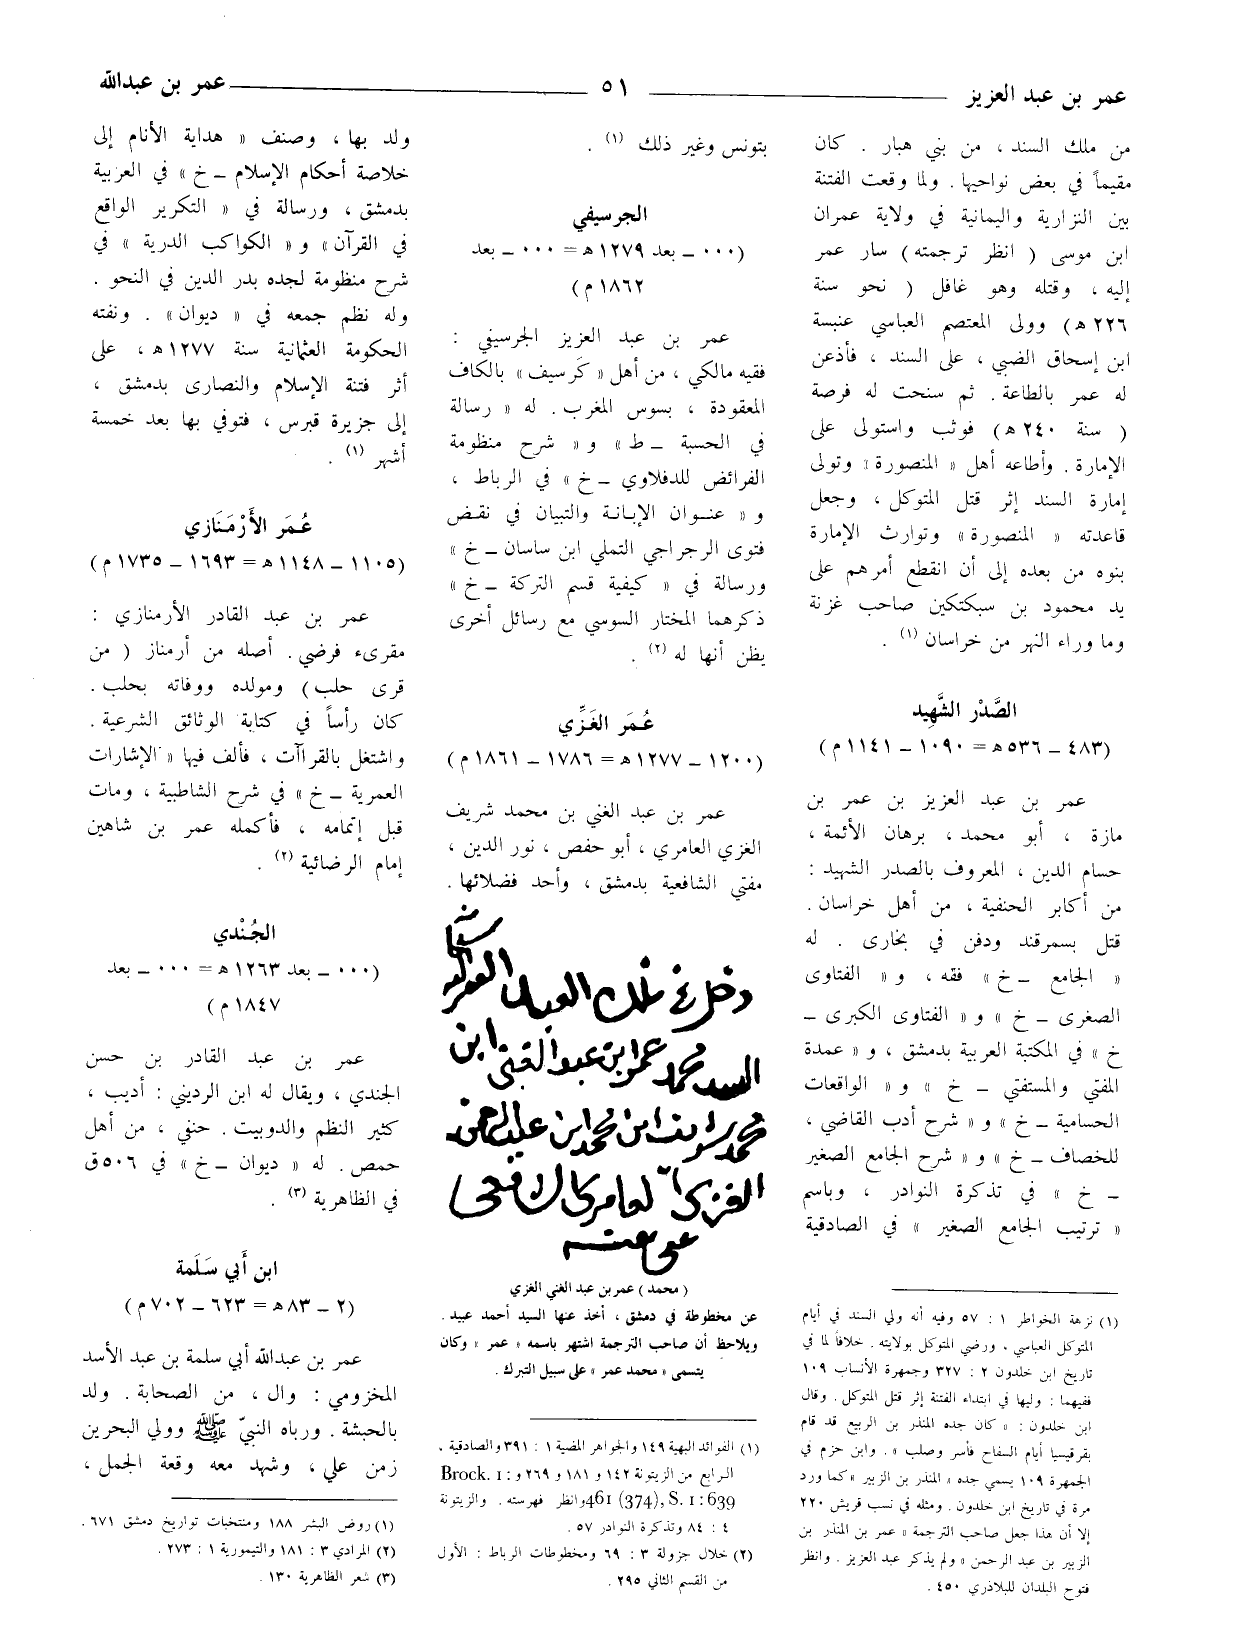 عمر بن عبد العزيز
٥١
عمر بن عبدالله
من ملك السند ، من بني هبار . كان
مقيماً في بعض نواحيها . ولما وقعت الفتنة
بين النزارية واليمانية في ولاية عمران
ابن موسى ( انظر ترجمته ) سار عمر
إليه ، وقتله وهو غافل ( نحو سنة
٢٢٦ هـ ) وولى المعتصم العباسي عنبسة
ابن إسحاق الضبي ، على السند ، فأذعن
له عمر بالطاعة . ثم سنحت له فرصة
( سنة ٢٤٠ هـ ) فوثب واستولى على
الإمارة . وأطاعه أهل « المنصورة » وتولى
إمارة السند إثر قتل المتوكل ، وجعل
قاعدته « المنصورة » وتوارث الإمارة
بنوه من بعده إلى أن انقطع أمرهم على
يد محمود بن سبكتكين صاحب غزنة
وما وراء النهر من خراسان (١) .
الصَّدْر الشَّهِيد
(٤٨٣ – ٥٣٦ هـ = ١٠٩٠ – ١١٤١ م )
عمر بن عبد العزيز بن عمر بن
مازة ، أبو محمد ، برهان الأئمة ،
حسام الدين ، المعروف بالصدر الشهيد :
من أكابر الحنفية ، من أهل خراسان .
قتل بسمرقند ودفن في بخارى . له
« الجامع – خ » فقه ، و « الفتاوى
الصغرى – خ » و « الفتاوى الكبرى –
خ » في المكتبة العربية بدمشق ، و « عمدة
المفتي والمستفتي – خ » و « الواقعات
الحسامية – خ » و « شرح أدب القاضي ،
للخصاف – خ » و « شرح الجامع الصغير
– خ » في تذكرة النوادر ، وباسم
« ترتيب الجامع الصغير » في الصادقية
(١) نزهة الخواطر ١ : ٥٧ وفيه أنه ولي السند في أيام
المتوكل العباسي ، ورضي المتوكل بولايته . خلافاً لما في
تاريخ ابن خلدون ٢ : ٣٢٧ وجمهرة الأنساب ١٠٩
ففيهما : وليها في ابتداء الفتنة إثر قتل المتوكل . وقال
ابن خلدون : « كان جده المنذر بن الربيع قد قام
بقرقيسيا أيام السفاح فأسر وصلب » . وابن حزم في
الجمهرة ١٠٩ يسمي جده « المنذر بن الزبير » كما ورد
مرة في تاريخ ابن خلدون . ومثله في نسب قريش ٢٢٠
إلا أن هذا جعل صاحب الترجمة « عمر بن المنذر بن
الزبير بن عبد الرحمن » ولم يذكر عبد العزيز . وانظر
فتوح البلدان للبلاذري ٤٥٠ .
بتونس وغير ذلك (١) .
الجرسيفي
(٠٠٠ – بعد ١٢٧٩ هـ = ٠٠٠ – بعد
١٨٦٢ م )
عمر بن عبد العزيز الجرسيفي :
فقيه مالكي ، من أهل « كَرسيف » بالكاف
المعقودة ، بسوس المغرب . له « رسالة
في الحسبة – ط » و « شرح منظومة
الفرائض للدفلاوي – خ » في الرباط ،
و « عنوان الإبانة والتبيان في نقض
فتوى الرجراجي التملي ابن ساسان – خ »
ورسالة في « كيفية قسم التركة – خ »
ذكرهما المختار السوسي مع رسائل أخرى
يظن أنها له (٢) .
عُمَر الغَزِّي
(١٢٠٠ – ١٢٧٧ هـ = ١٧٨٦ – ١٨٦١ م )
عمر بن عبد الغني بن محمد شريف
الغزي العامري ، أبو حفص ، نور الدين ،
مفتي الشافعية بدمشق ، وأحد فضلائها .
دخل في ملك العبد الفقير اليه
السيد محمد عمر ابن عبد الغني ابن
محمد شريف ابن محمد ابن عبد الرحمن
الغزي العامري
عفي عنه
( محمد ) عمر بن عبد الغني الغزي
عن مخطوطة في دمشق ، أخذ عنها السيد أحمد عبيد .
ويلاحظ أن صاحب الترجمة اشتهر باسمه « عمر » وكان
يتسمى « محمد عمر » على سبيل التبرك .
(١) الفوائد البهية ١٤٩ والجواهر المضية ١ : ٣٩١ والصادقية ،
الرابع من الزيتونة ١٤٢ و ١٨١ و ٢٦٩ و Brock. 1:
461 (374), S. 1:639 وانظر فهرسته . والزيتونة
٤ : ٨٤ وتذكرة النوادر ٥٧ .
(٢) خلال جزولة ٣ : ٦٩ ومخطوطات الرباط : الأول
من القسم الثاني ٢٩٥ .
ولد بها ، وصنف « هداية الأنام إلى
خلاصة أحكام الإسلام – خ » في العربية
بدمشق ، ورسالة في « التكرير الواقع
في القرآن » و « الكواكب الدرية » في
شرح منظومة لجده بدر الدين في النحو .
وله نظم جمعه في « ديوان » . ونفته
الحكومة العثمانية سنة ١٢٧٧ هـ ، على
أثر فتنة الإسلام والنصارى بدمشق ،
إلى جزيرة قبرس ، فتوفي بها بعد خمسة
أشهر (١) .
عُمَر الأَرْمَنَازي
(١١٠٥ – ١١٤٨ هـ = ١٦٩٣ – ١٧٣٥ م )
عمر بن عبد القادر الأرمنازي :
مقرىء فرضي . أصله من أرمناز ( من
قرى حلب ) ومولده ووفاته بحلب .
كان رأساً في كتابة الوثائق الشرعية .
واشتغل بالقراآت ، فألف فيها « الإشارات
العمرية – خ » في شرح الشاطبية ، ومات
قبل إتمامه ، فأكمله عمر بن شاهين
إمام الرضائية (٢) .
الجُنْدي
(٠٠٠ – بعد ١٢٦٣ هـ = ٠٠٠ – بعد
١٨٤٧ م )
عمر بن عبد القادر بن حسن
الجندي ، ويقال له ابن الرديني : أديب ،
كثير النظم والدوبيت . حنفي ، من أهل
حمص . له « ديوان – خ » في ٥٠٦ ق
في الظاهرية (٣) .
ابن أبي سَلَمة
(٢ – ٨٣ هـ = ٦٢٣ – ٧٠٢ م )
عمر بن عبدالله أبي سلمة بن عبد الأسد
المخزومي : وال ، من الصحابة . ولد
بالحبشة . ورباه النبيّ ﷺ وولي البحرين
زمن علي ، وشهد معه وقعة الجمل ،
(١) روض البشر ١٨٨ ومنتخبات تواريخ دمشق ٦٧١ .
(٢) المرادي ٣ : ١٨١ والتيمورية ١ : ٢٧٣ .
(٣) شعر الظاهرية ١٣٠ .